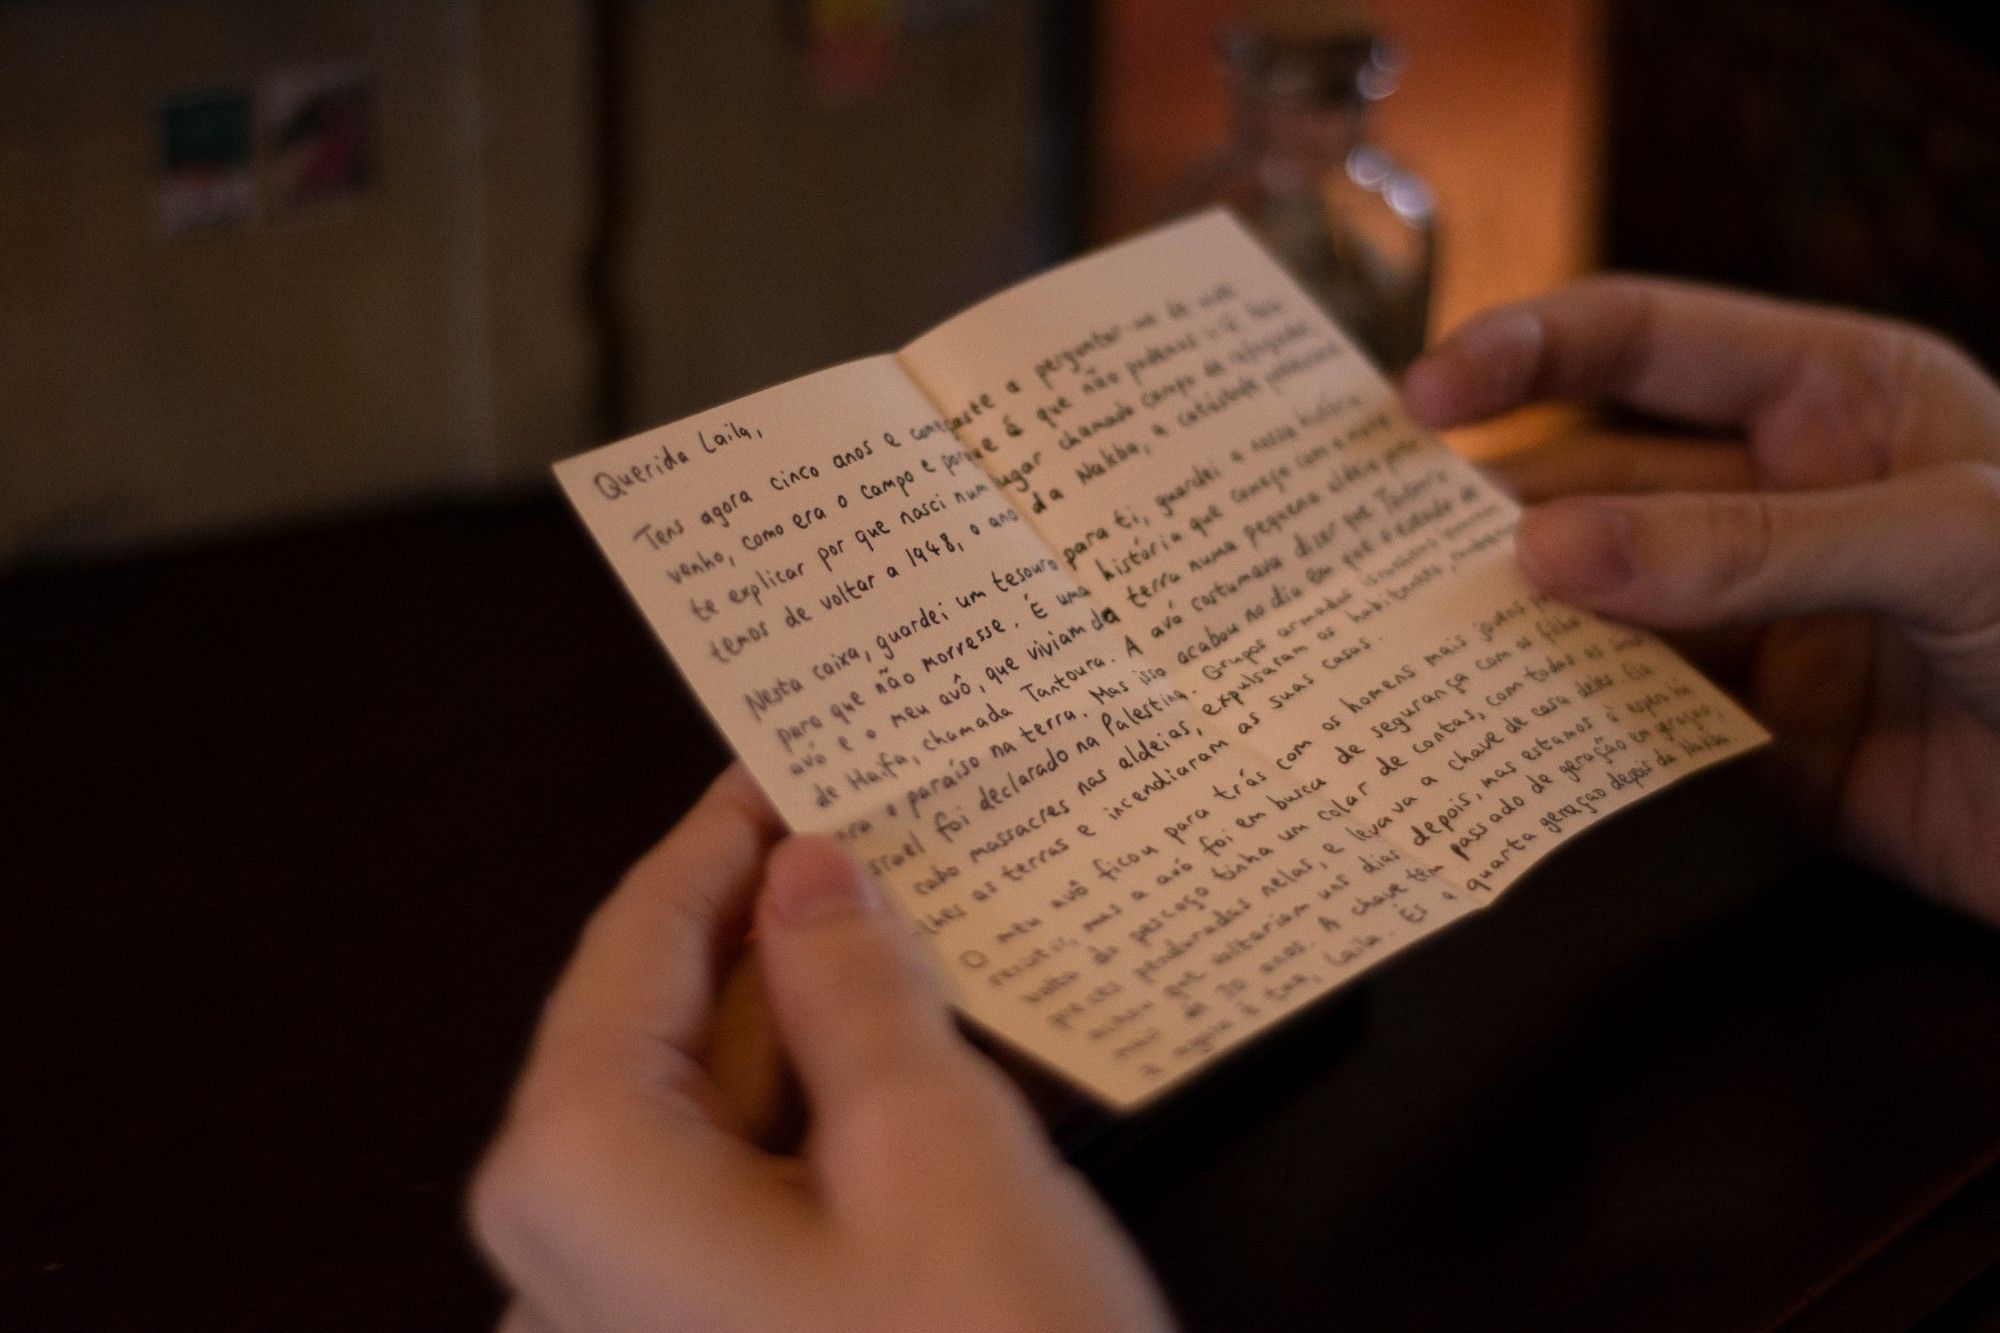 Querida Laila,
Tens agora cinco anos e começaste a perguntar-me de onde
venho, como era o campo e porque é que não podemos ir lá. Para
te explicar por que nasci num lugar chamado campo de refugiados,
temos de voltar a 1948, o ano da Nakba, a catástrofe palestiniana.
Nesta caixa, guardei um tesouro para ti, guardei a nossa história
para que não morresse. É uma história que começa com a minha
avó e o meu avô, que viviam da terra numa pequena aldeia perto
de Haifa, chamada Tantoura. A avó costumava dizer que Tantoura
era o paraíso na terra. Mas isso acabou no dia em que o estado de
Israel foi declarado na Palestina. Grupos armados
cabo massacres nas aldeias, expulsaram os habitantes,
lhes as terras e incendiaram as suas casas.
O meu avô ficou para trás com os homens mais jovens
resistir, mas a avó foi em busca de segurança com os filhos
volta do pescoço tinha um colar de contas, com todas as
penduradas nelas, e levava a chave de casa deles. Ela
que voltariam uns dias depois, mas estamos à espera há
mais de 70 anos. A chave tem passado de geração em geração,
e agora é tua, Laila. És a quarta geração depois da Nakba.